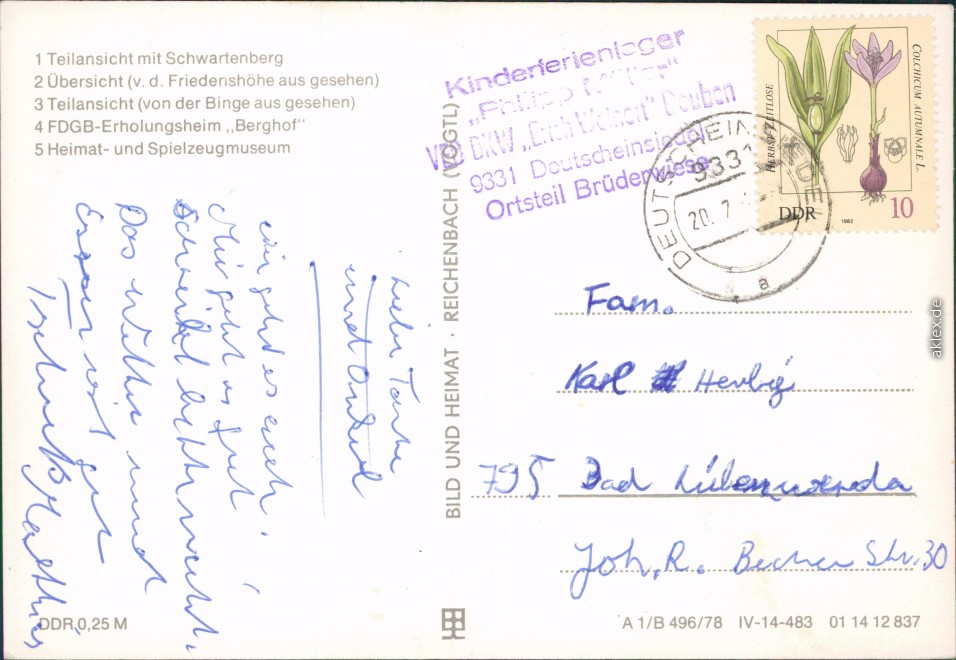 1 Teilansicht mit Schwartenberg
2 Übersicht (v. d. Friedenshöhe aus gesehen)
3 Teilansicht (von der Binge aus gesehen)
4 FDGB-Erholungsheim „Berghof“
5 Heimat- und Spielzeugmuseum
Kinderferienlager
„Philipp Müller“
VEB BKW „Erich Weinert“ Deuben
9331 Deutscheinsiedel
Ortsteil Brüderwiese
DEUTSCHEINSIEDEL
9331
20. 7.
a
HERBSTZEITLOSE
COLCHICUM AUTUMNALE L.
DDR
1982
10
Liebe Tante
und Onkel
geht es euch.
Mir geht es gut
Das Wetter
Essen ist gut
Tschuß Matthias
BILD UND HEIMAT · REICHENBACH (VOGTL)
Fam.
Karl Herbig
795 Bad Liebenwerda
Joh. R. Becher Str. 30
DDR 0,25 M
A 1/B 496/78 IV-14-483 01 14 12 837
aklex.de